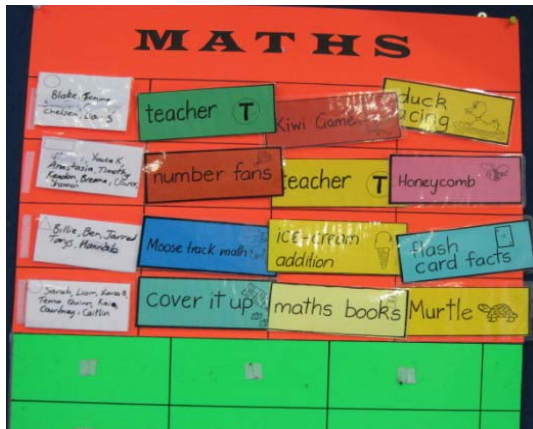 MATHS
Blake, Jemma
Chelsea, Lia S
teacher T
Kiwi Game
duck
racing
Youta K,
Anastasia, Timothy
Keaton, Breana, Oliver,
Shannon
number fans
teacher T
Honeycomb
Billie, Ben, Jarrod
Tarys, Hannah
Moose track math
ice-cream
addition
flash
card facts
Sarah, Liam,
Tema, Quinn,
Courtney, Caitlin
cover it up
maths books
Murtle